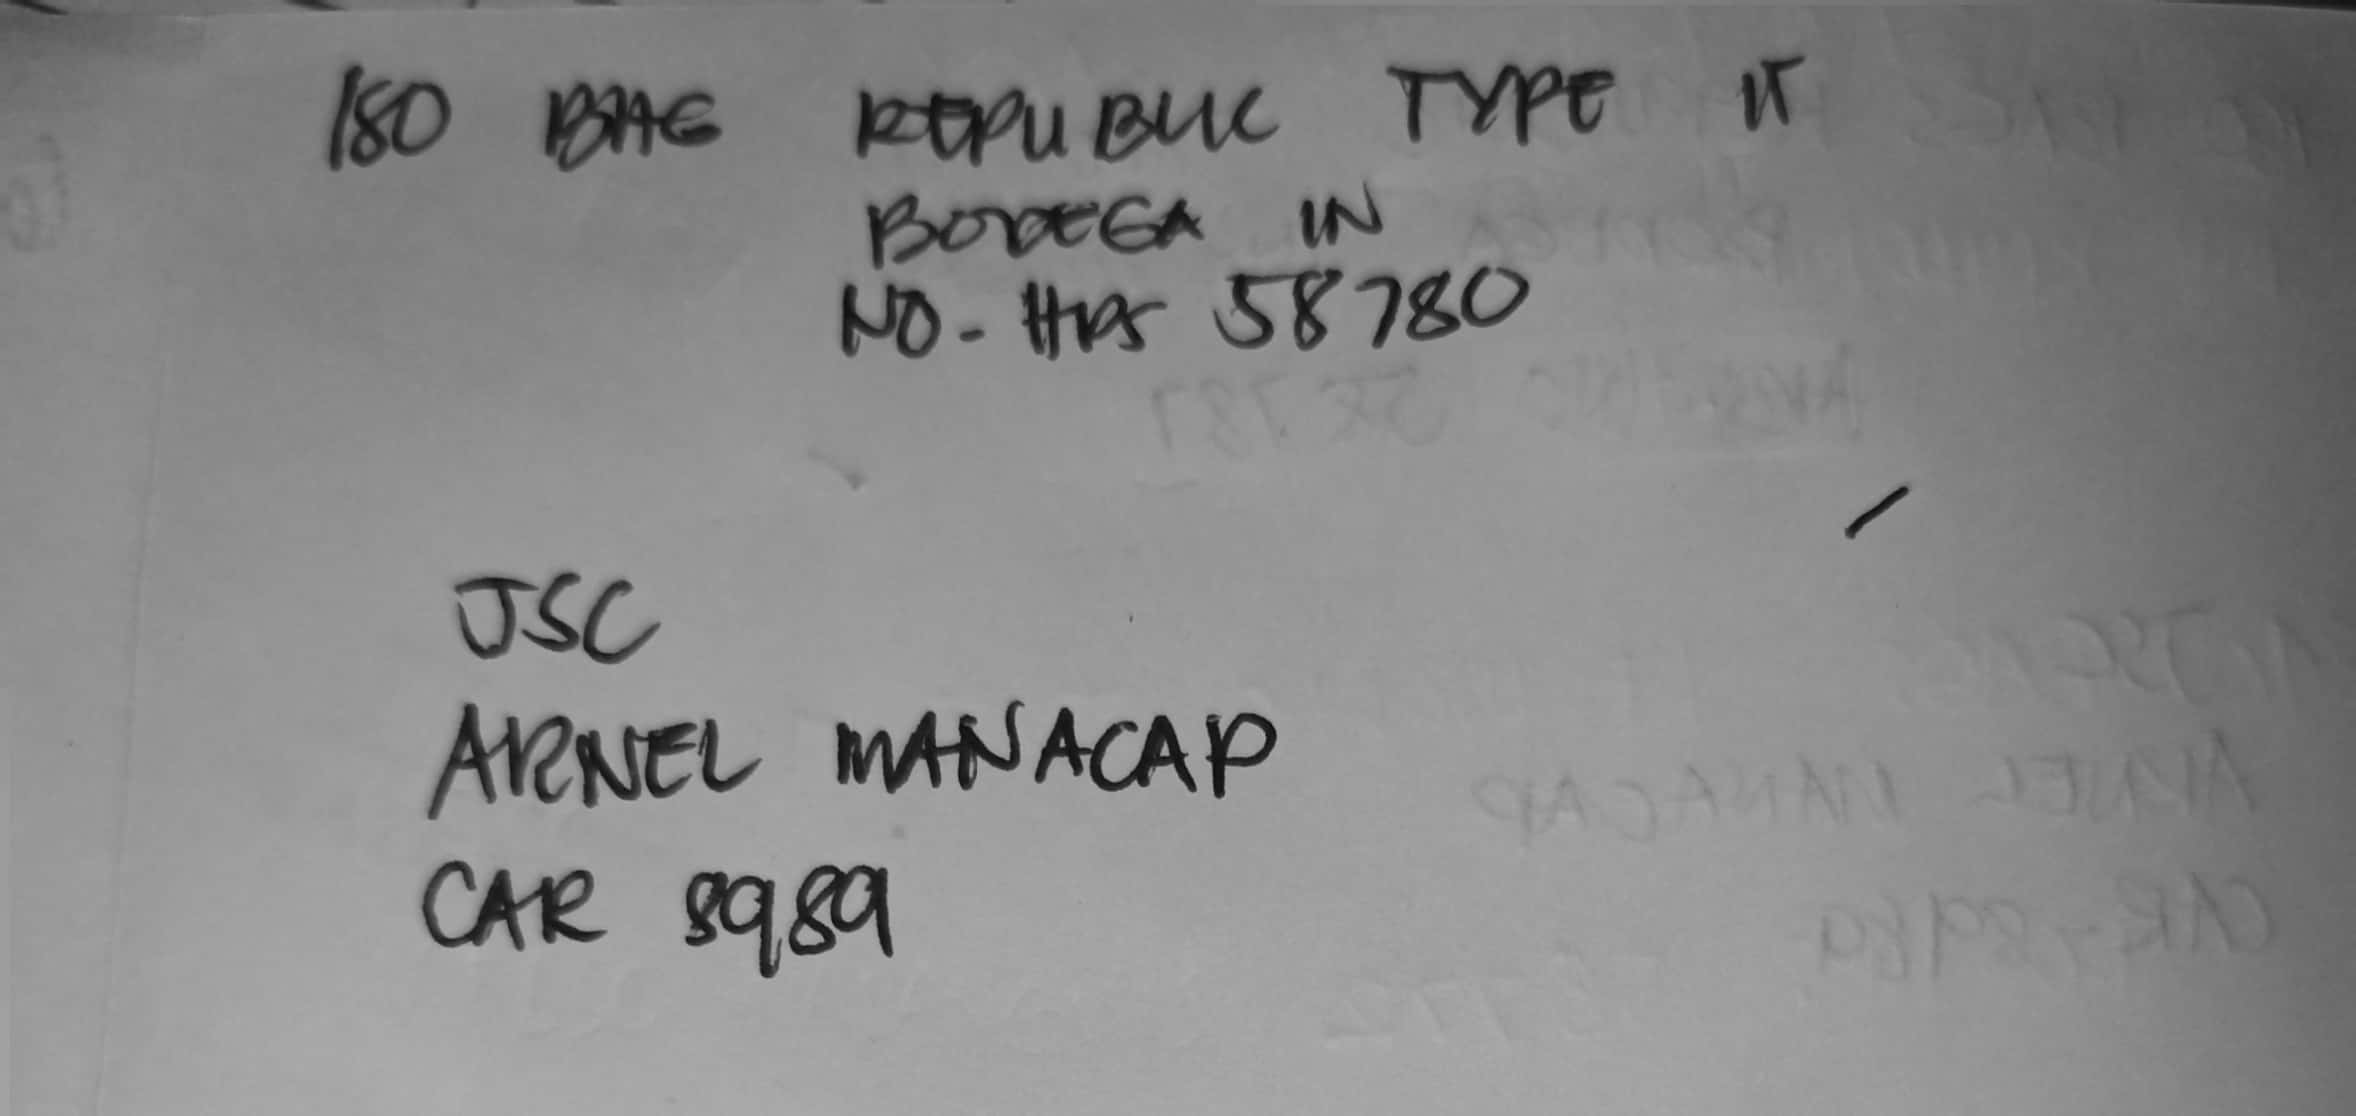 180 BAG REPUBLIC TYPE 1T
BODEGA IN
NO - HRS 58780
JSC
ARNEL MANACAP
CAR 8989